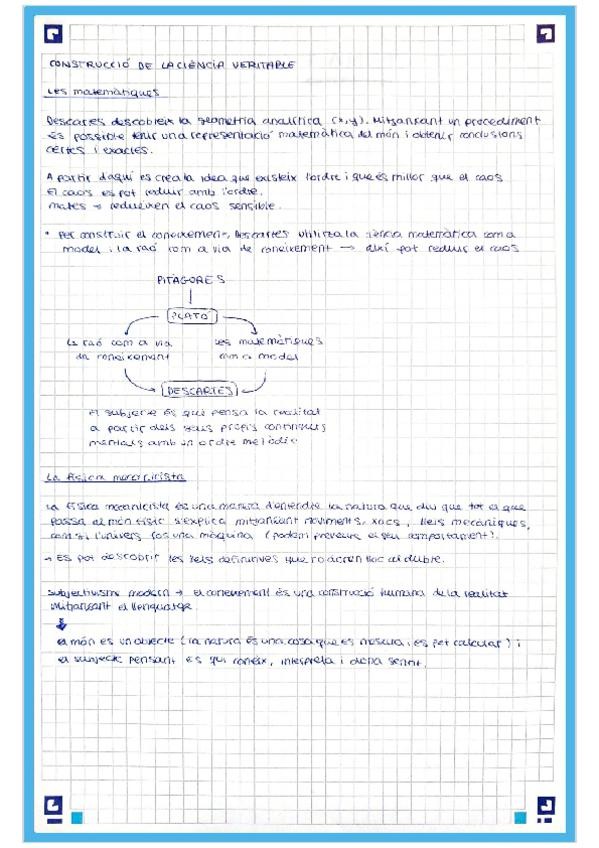 CONSTRUCCIÓ DE LA CIÈNCIA VERITABLE
Les matemàtiques
Descartes descobreix la geometria analítica (x,y). Mitjançant un procediment
és possible tenir una representació matemàtica del món i obtenir conclusions
certes i exactes.
A partir d'aquí es crea la idea que existeix l'ordre i que és millor que el caos
El caos es pot reduir amb l'ordre.
mates → redueixen el caos sensible.
* Per construir el coneixement, Descartes utilitza la ciència matemàtica com a
model i la raó com a via de coneixement → així pot reduir el caos
PITÀGORES
PLATÓ
la raó com a via
de coneixement
les matemàtiques
com a model
DESCARTES
El subjecte és qui pensa la realitat
a partir dels seus propis continguts
mentals amb un ordre metòdic
La física mecanicista
La física mecanicista és una manera d'entendre la natura que diu que tot el que
passa al món físic s'explica mitjançant moviments, xocs, lleis mecàniques,
com si l'univers fos una màquina (podem preveure el seu comportament).
→ Es pot descobrir les lleis definitives que no deixen lloc al dubte.
Subjectivisme modern → el coneixement és una construcció humana de la realitat
mitjançant el llenguatge.
el món és un objecte (la natura és una cosa que es mesura i es pot calcular) i
el subjecte pensant és qui coneix, interpreta i dona sentit.